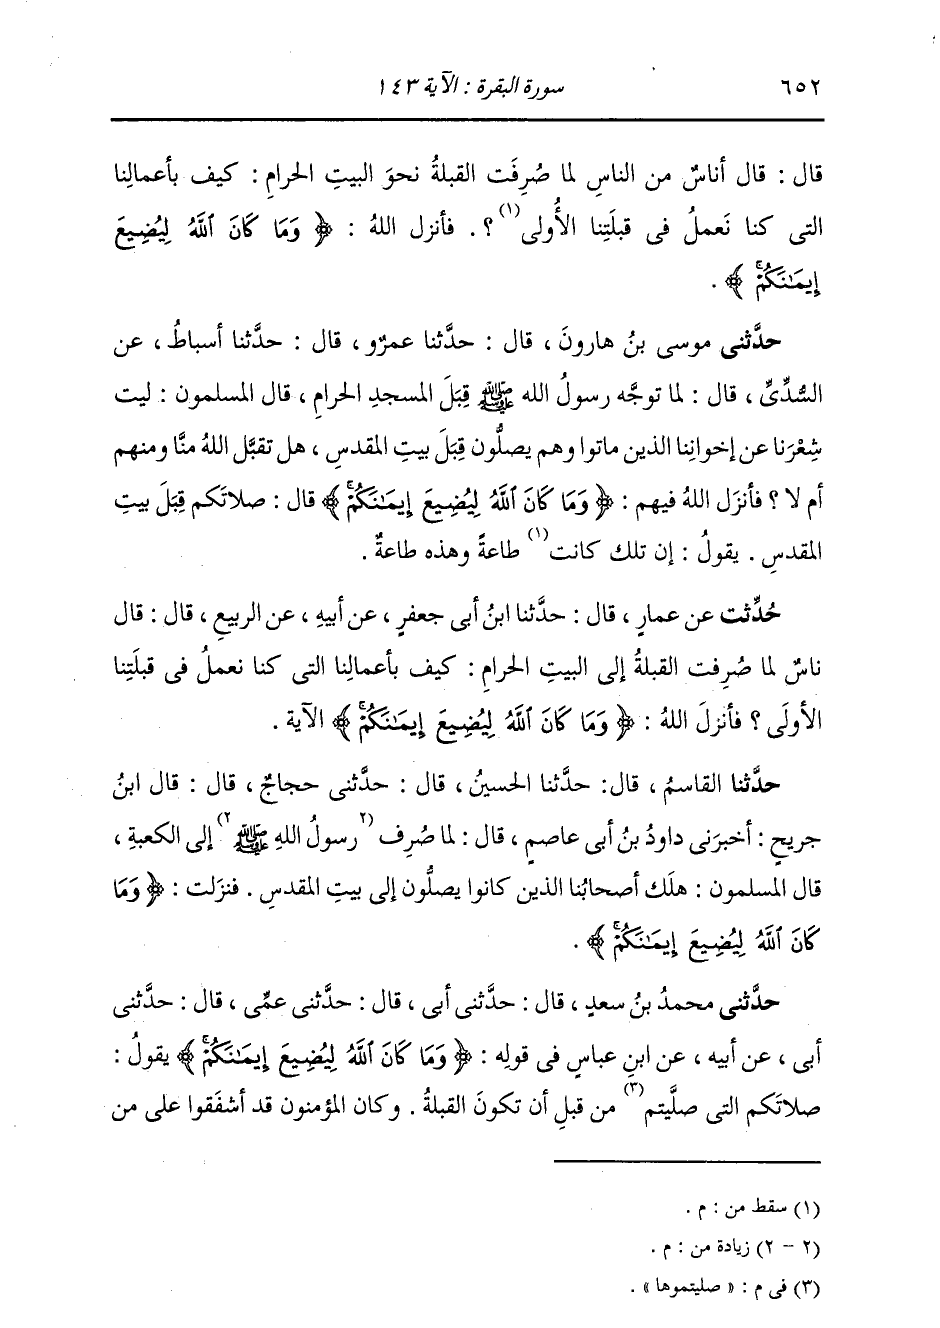 ٦٥٢ سورة البقرة : الآية ١٤٣
قال : قال أناسٌ من الناسِ لما صُرِفَت القبلةُ نحوَ البيتِ الحرامِ : كيف بأعمالِنا
التى كنا نَعملُ فى قبلَتِنا الأُولى(١) ؟ . فأنزل اللهُ : ﴿ وَمَا كَانَ ٱللَّهُ لِيُضِيعَ
إِيمَٰنَكُمْۚ ﴾ .
حدَّثنى موسى بنُ هارونَ ، قال : حدَّثنا عمرٌو ، قال : حدَّثنا أسباطُ ، عن
السُّدِّىِّ ، قال : لما توجَّه رسولُ الله ﷺ قِبَلَ المسجدِ الحرامِ ، قال المسلمون : ليت
شِعْرَنا عن إخوانِنا الذين ماتوا وهم يصلُّون قِبَلَ بيتِ المقدسِ ، هل تقبَّل اللهُ منَّا ومنهم
أم لا ؟ فأنزَل اللهُ فيهم : ﴿ وَمَا كَانَ ٱللَّهُ لِيُضِيعَ إِيمَٰنَكُمْۚ ﴾ قال : صلاتَكم قِبَلَ بيتِ
المقدسِ . يقولُ : إن تلك كانت(١) طاعةً وهذه طاعةٌ .
حُدِّثت عن عمارٍ ، قال : حدَّثنا ابنُ أبى جعفرٍ ، عن أبيهِ ، عن الربيعِ ، قال : قال
ناسٌ لما صُرِفت القبلةُ إلى البيتِ الحرامِ : كيف بأعمالِنا التى كنا نعملُ فى قبلَتِنا
الأولَى ؟ فأنزلَ اللهُ : ﴿ وَمَا كَانَ ٱللَّهُ لِيُضِيعَ إِيمَٰنَكُمْۚ ﴾ الآية .
حدَّثنا القاسمُ ، قال : حدَّثنا الحسينُ ، قال : حدَّثنى حجاجٌ ، قال : قال ابنُ
جريجٍ : أخبرَنى داودُ بنُ أبى عاصمٍ ، قال : لما صُرِف (٢رسولُ اللهِ ﷺ٢) إلى الكعبةِ ،
قال المسلمون : هلَك أصحابُنا الذين كانوا يصلُّون إلى بيتِ المقدسِ . فنزلَت : ﴿ وَمَا
كَانَ ٱللَّهُ لِيُضِيعَ إِيمَٰنَكُمْۚ ﴾ .
حدَّثنى محمدُ بنُ سعدٍ ، قال : حدَّثنى أبى ، قال : حدَّثنى عمِّى ، قال : حدَّثنى
أبى ، عن أبيه ، عن ابنِ عباسٍ فى قولِه : ﴿ وَمَا كَانَ ٱللَّهُ لِيُضِيعَ إِيمَٰنَكُمْۚ ﴾ يقولُ :
صلاتَكم التى صلَّيتم(٣) من قبلِ أن تكونَ القبلةُ . وكان المؤمنون قد أشفَقوا على من
(١) سقط من : م .
(٢ - ٢) زيادة من : م .
(٣) فى م : « صليتموها » .